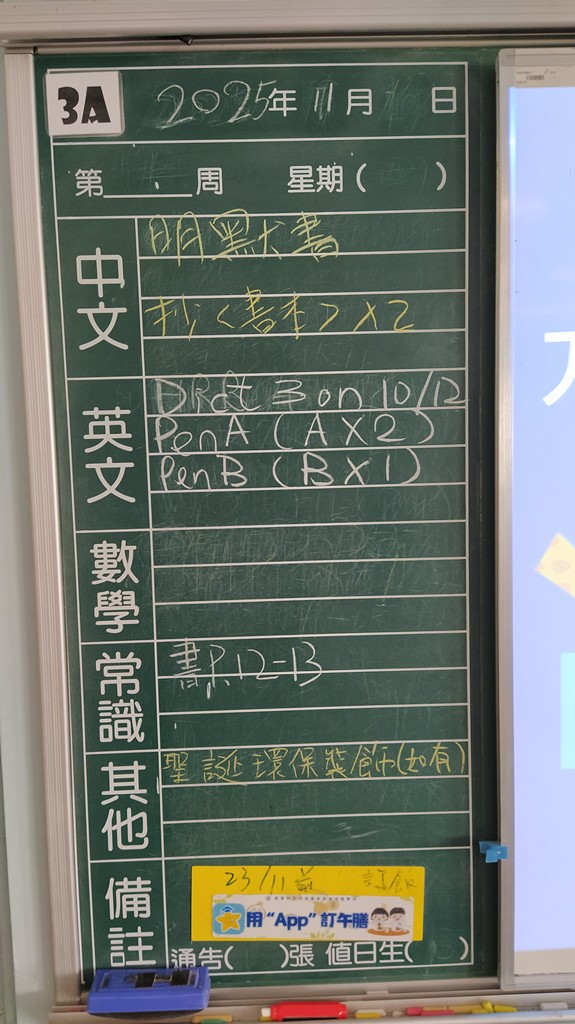 3A
2025年 11月 日
第 周 星期( )
中文
明默大書
抄<書本>X2
英文
Dict 3 on 10/12
Pen A (A X 2)
Pen B (B X 1)
數學
常識
書P.12-13
其他
聖誕環保裝飾(如有)
備註
23/11前 訂飯
用“App”訂午膳
通告( )張 值日生( )